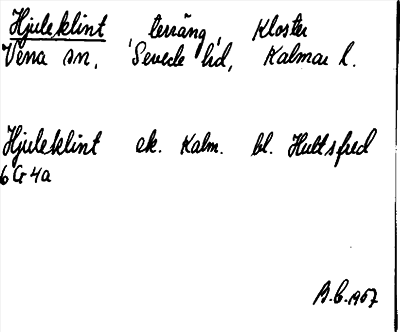 Hjuleklint, terräng, Kloster
Vena sn, Sevede hd, Kalmar l.
Hjuleklint ek. Kalm. bl. Hultsfred
6 G 4a
B.C. 1957